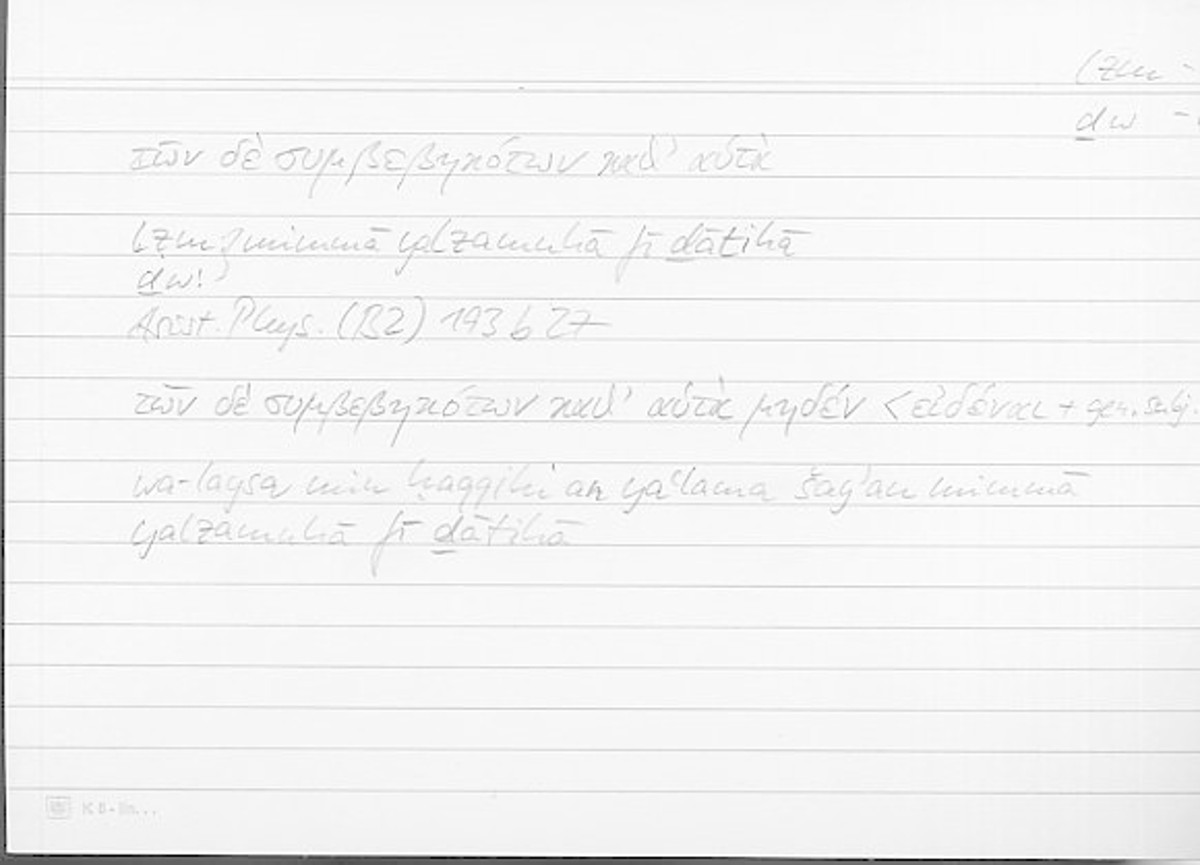 lzm -
ḏw -
τῶν δὲ συμβεβηκότων καθ' αὑτὰ
lzm } mimmā yalzamuhā fī ḏātihā
ḏw!
Arist. Phys. (B2) 193 b 27
τῶν δὲ συμβεβηκότων καθ' αὑτὰ μηδέν < εἰδέναι + gen. subj
wa-laysa min ḥaqqihi an yaʿlama šayʾan mimmā
yalzamuhā fī ḏātihā